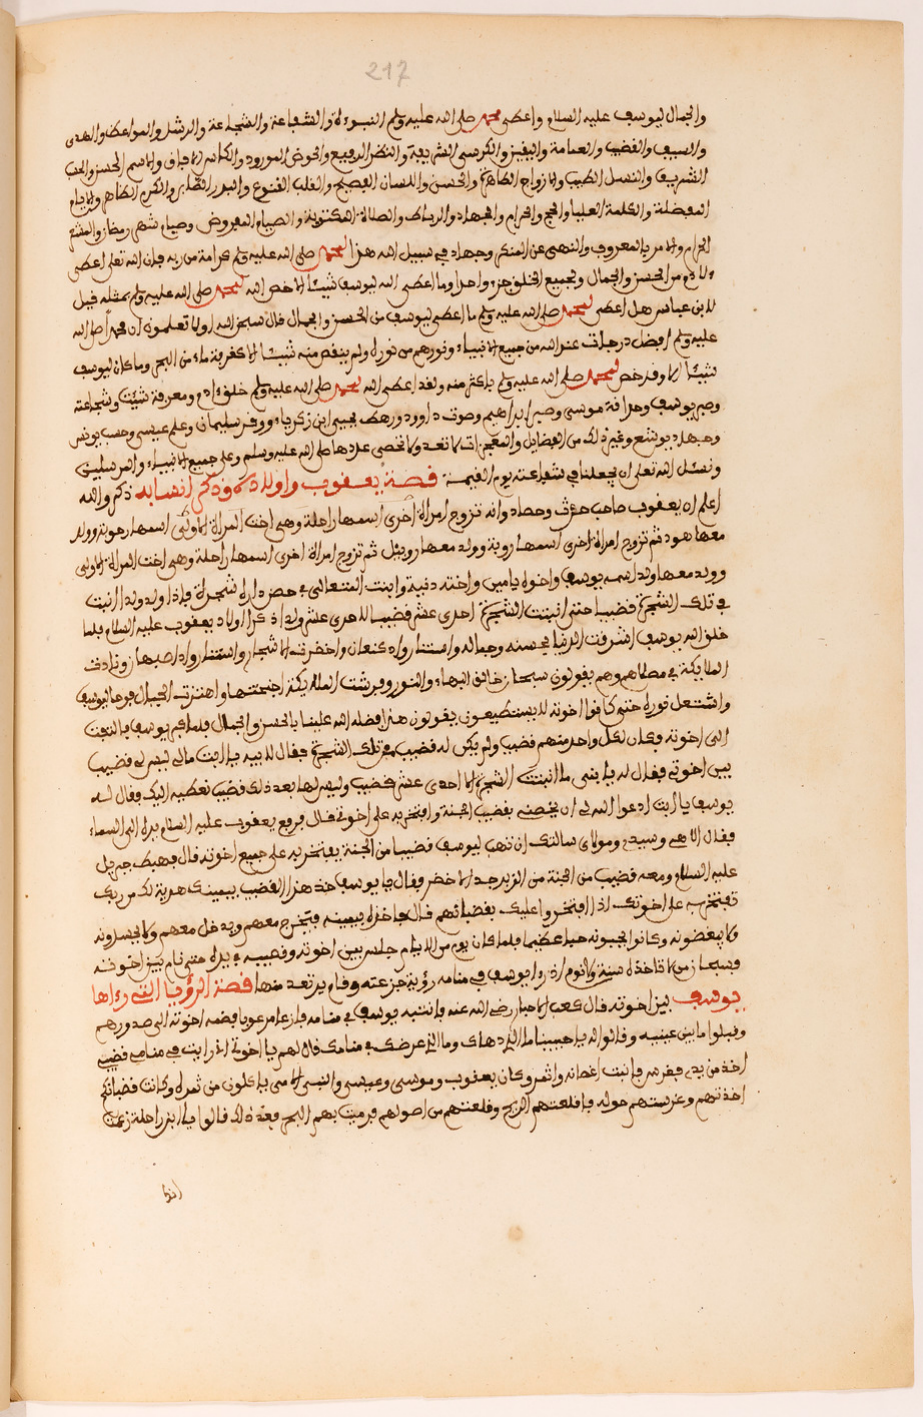 217
والجمال ليوسف عليه السلام واعطى محمد صلى الله عليه وسلم النبوءة والشفاعة والشجاعة والرشد والمواعظ والهدى
والسيف والقضيب والعمامة واليقين والكرسي الشريفة والنظر الرفيع والحوض المورود والكاس الاوفاق والاسم الحسن والحب
الشريف والنسل الطيب والازواج الطاهرة والحسن واللسان الفصيح والقلب القنوع والبدر الظاهر والكرم الظاهر والايام
المفضلة والكلمة العليا والحج والحرام والجهاد والرباط والصلاة المكتوبة والصيام المفروض وصيام شهر رمضان والمشعر
الحرام والامر بالمعروف والنهي عن المنكر وجهاد في سبيل الله هذا لمحمد صلى الله عليه وسلم كرامة من ربه فان الله تعلى اعطى
لادم من الحسن والجمال ولجميع الخلق جزء واحد وما اعطى الله ليوسف شيئا الا خص الله لمحمد صلى الله عليه وسلم بمثله قيل
لابن عباس هل اعطى لمحمد صلى الله عليه وسلم ما اعطى ليوسف من الحسن والجمال قال سبحن الله اولا تعلمون ان محمدا صلى الله
عليه وسلم افضل درجات عند الله من جميع الانبياء ونورهم من نوره ولم ينقص منه شيئا الا كغرفة ماء من البحر وما كان ليوسف
شيئا الا وقد خص لمحمد صلى الله عليه وسلم باكثر منه ولقد اعطى الله لمحمد صلى الله عليه وسلم خلق ءادم ومعرفة شيث وشجاعة
وصبر يوسف وهرافة موسى وصبر ابراهيم وصوت داوود ورهط يحيى ابن زكرياء ووقر سليمان وعلم عيسى وحسب يونس
وجهاد يوشع وغير ذلك من الفضايل والمعجزات لا تعد ولا تحصى عددها صلى الله عليه وسلم وعلى جميع الانبياء والمرسلين
ونسئل الله تعلى ان يجعلنا في شفاعته يوم القيمة قصة يعقوب واولاده وذكر انسابه ذكر والله
اعلم ان يعقوب صاحب حرث وحصاد وانه تزوج امراة اخرى اسمها راحلة وهي اخت المراة الاولى اسمها رحونة وولد
معها هود ثم تزوج امراة اخرى اسمها روبة وولد معها روبيل ثم تزوج امراة اخرى اسمها راحلة وهي اخت المراة الاولى
وولد معها ولدا اسمه يوسف واخوه يامين واخته دنية وانبت المتعالى في حصن داره شجرة فاذا ولد ولدا انبت
في تلك الشجرة قضيبا حتى انبتت الشجرة احدى عشر قضيبا لاحدى عشر ولدا ذكرا اولاد يعقوب عليه السلام فلما
خلق الله يوسف اشرقت الدنيا بحسنه وجماله وامتنار واد كنعان واخضرت الاشجار واستنار واد اصبهان ونادت
الملايكة في مطامهم وهم يقولون سبحان خالق البهاء والنور وفرشت الملايكة اجنحتها واهتزت الجبال فرحا ليوسف
واشتعل نوره حتى كانوا اخوته لا يستطيعون يقولون هذا فضله الله علينا بالحسن والجمال فلما كبر يوسف بالتفت
الى اخوته وكان لكل واحد منهم قضيب ولم يكن له قضيب من تلك الشجرة فقال لابيه يا ابت مالى ليس لى قضيب
بين اخوتى فقال له يا بني ما انبتت الشجرة الا احدى عشر قضيب وليس لها بعد ذلك قضيب نعطيه اليك فقال له
يوسف يا ابت ادعوا الله لى ان يخصني بقضيب الجنة وافتخر به على اخوتى قال فرفع يعقوب عليه السلام يده الى السماء
فقال الاهى وسيدى ومولاى سالتك ان تهب ليوسف قضيبا من الجنة يفتخر به على جميع اخوته قال فهبط جبريل
عليه السلام ومعه قضيب من الجنة من الزبرجد الاخضر فقال يا يوسف خذ هذا القضيب بيمينك هدية لك من ربك
تفتخر به على اخوتك اذا افتخروا عليك بقضبانهم قال فاخذه بيمينه فيخرج معهم ويدخل معهم ولا يحسدونه
ولا يبغضونه وكانوا يحبونه حبا عظيما فلما كان يوم من الايام جلس بين اخوته وقضيبه في يده حتى نام بين اخوته
وسبحان من لا تاخذه سنة ولا نوم اذ رءا يوسف في منامه رؤية جزعته وقام يرتعد منها قصة الرؤيا التى رءاها
يوسف بين اخوته قال كعب الاحبار رضى الله عنه فانتبه يوسف في منامه فازعا مرعوبا فضمه اخوته الى صدورهم
وقبلوا ما بين عينيه وقالوا له يا حبيبنا ما الذى دهاك وما الذى عرضك في منامك قال لهم يا اخوتى انى رايت في منامى قضيبى
اخذ من يدى فغرس فانبت اغصانه واثمر وكان يعقوب وموسى وعيسى والنبى الامى ياكلون من ثمره وكانت قضبانكم
اخذتهم وغرستهم حوله فاقلعتهم الريح وقلعتهم من اصولهم فرميت بهم البحر فعند ذلك قالوا يا ابن راحلة زعمت
انك